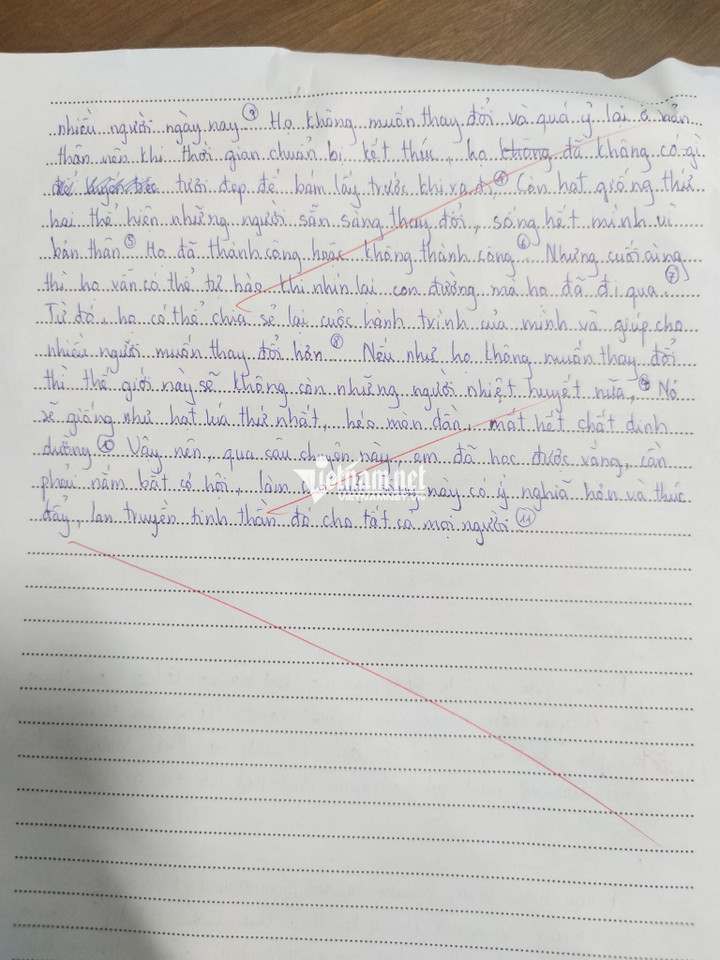 nhiều người ngày nay ③ Họ không muốn thay đổi và quá ỷ lại ở bản
thân nên khi thời gian chuẩn bị kết thúc, họ không đã không có gì
tươi đẹp để bám lấy trước khi ra đi ④ Còn hạt giống thứ
hai thể hiện những người sẵn sàng thay đổi, sống hết mình vì
bản thân ⑤ Họ đã thành công hoặc không thành công ⑥. Nhưng cuối cùng
thì họ vẫn có thể tự hào khi nhìn lại con đường mà họ đã đi qua. ⑦
Từ đó, họ có thể chia sẻ lại cuộc hành trình của mình và giúp cho
nhiều người muốn thay đổi hơn ⑧ Nếu như họ không muốn thay đổi
thì thế giới này sẽ không còn những người nhiệt huyết nữa, ⑨ Nó
sẽ giống như hạt lúa thứ nhất, héo mòn dần, mất hết chất dinh
dưỡng ⑩ Vậy nên, qua câu chuyện này, em đã học được rằng, cần
phải nắm bắt cơ hội, làm này có ý nghĩa hơn và thúc
đẩy, lan truyền tinh thần đó cho tất cả mọi người ⑪
vietnam.net